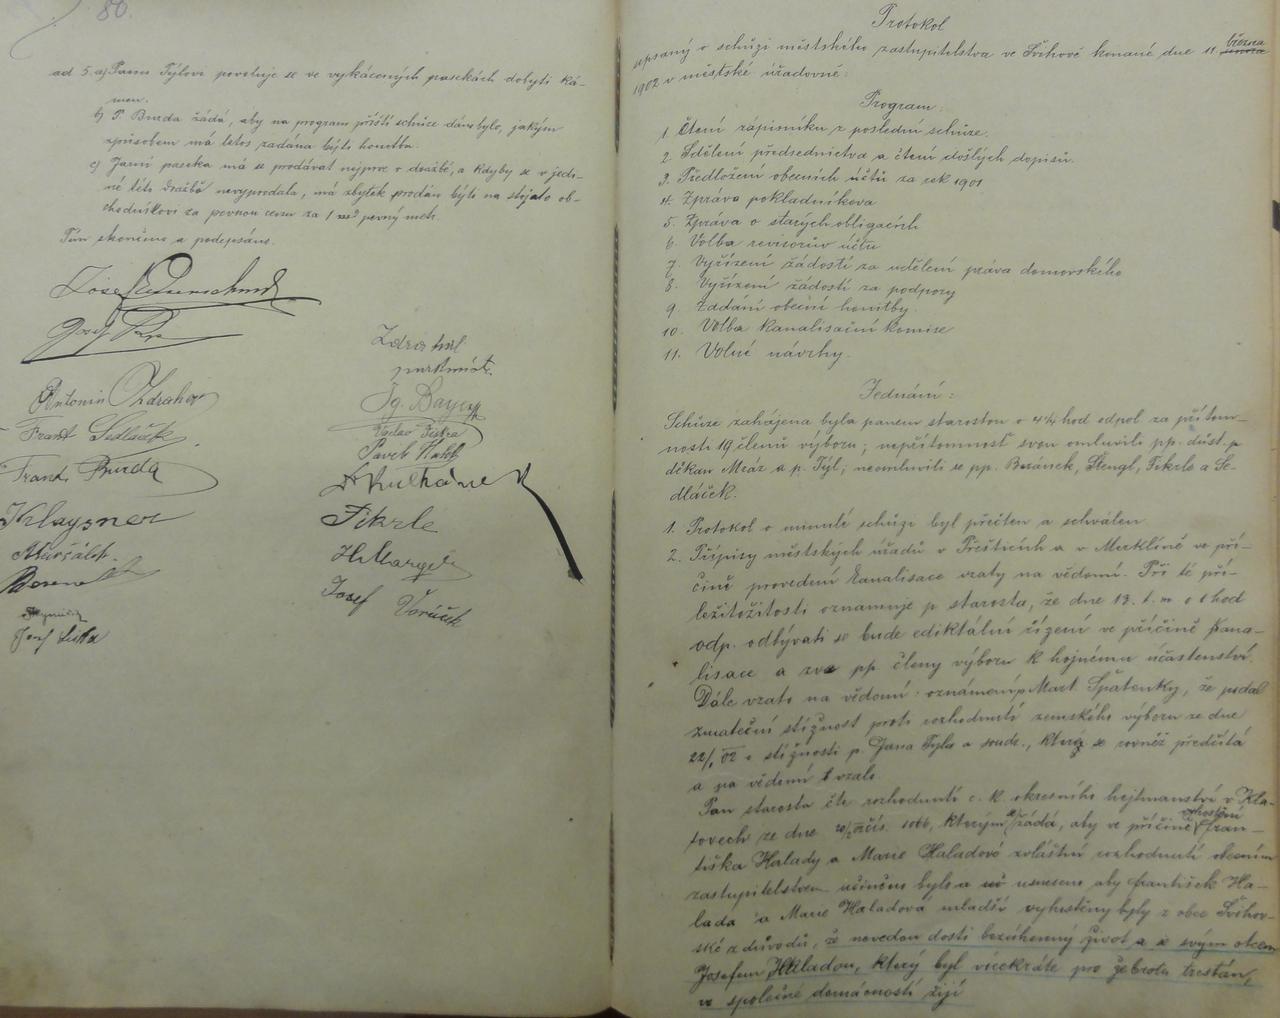 80.
ad 5. a) Panu Týlovi povoluje se ve vykácených pasekách dobýti ká-
men.
b) P. Burda žádá, aby na program příští schůze dáno bylo, jakým
způsobem má letos zadána býti honitba.
c) Jarní paseka má se prodávat nejprve v dražbě, a kdyby se v jedi-
né této dražbě nevyprodala, má zbytek prodán býti na stojato ob-
chodníkovi za pevnou cenu za 1 pevný metr.
Tím skončeno a podepsáno.
Josef
Josef
Antonín Zdrahal
Frant Sedláček
Frant. Burda
Klaysner
Maršálek
Josef Liška
Zdrahal
purkmistr.
Ig. Bayer
Václav Jiskra
Pavel
Fikrle
Josef Voráček
Protokol
sepsaný o schůzi městského zastupitelstva ve Švihově konané dne 11. března
1902 v městské úřadovně:
Program:
1. Čtení zápisníku z poslední schůze.
2. Sdělení předsednictva a čtení došlých dopisů.
3. Předložení obecních účtů za rok 1901
4. Zpráva pokladníkova
5. Zpráva o starých obligacích
6. Volba revisorův účtu
7. Vyřízení žádostí za udělení práva domovského
8. Vyřízení žádostí za podpory
9. Zadání obecní honitby.
10. Volba kanalisační komise
11. Volné návrhy.
Jednání:
Schůze zahájena byla panem starostou o 4¼ hod odpol za přítom-
nosti 19 členů výboru; nepřítomnost svou omluvili pp. dust. p
děkan Mráz a p. Týl; neomluvili se pp. Beránek, Štengl, Fikrle a Se-
dláček.
1. Protokol o minulé schůzi byl přečten a schválen
2. Přípisy městských úřadů v Přešticích a v Merklíně ve pří-
čině provedení kanalisace vzaty na vědomí. Při té pří-
ležitožitosti oznamuje p. starosta, že dne 13. t. m. o 1 hod
odp. odbývati se bude ediktální řízení ve příčině kana-
lisace a zve pp. členy výboru k hojnému účastenství.
Dále vzato na vědomí: oznámení p. Mart. Špatenky, že podal
zmateční stížnost proti rozhodnutí zemského výboru ze dne
22/1 02 o stížnosti p. Jana Týla a soudr., která se rovněž předčítá
a na vědomí vzala.
Pan starosta čte rozhodnutí c. k. okresního hejtmanství v Kla-
tovech ze dne čís. 5066, kterým se žádá, aby ve příčině vyhoštění Fran-
tiška Halady a Marie Haladové zvláštní rozhodnutí obecním
zastupitelstvem učiněno bylo a usneseno aby František Ha-
lada a Marie Haladová mladší vyhoštěny byly z obce Švihov-
ské z důvodů, že nevedou dosti bezúhonný život a se svým otcem
Josefem Haladou, který byl vícekráte pro žebrotu trestán,
ve společné domácnosti žijí